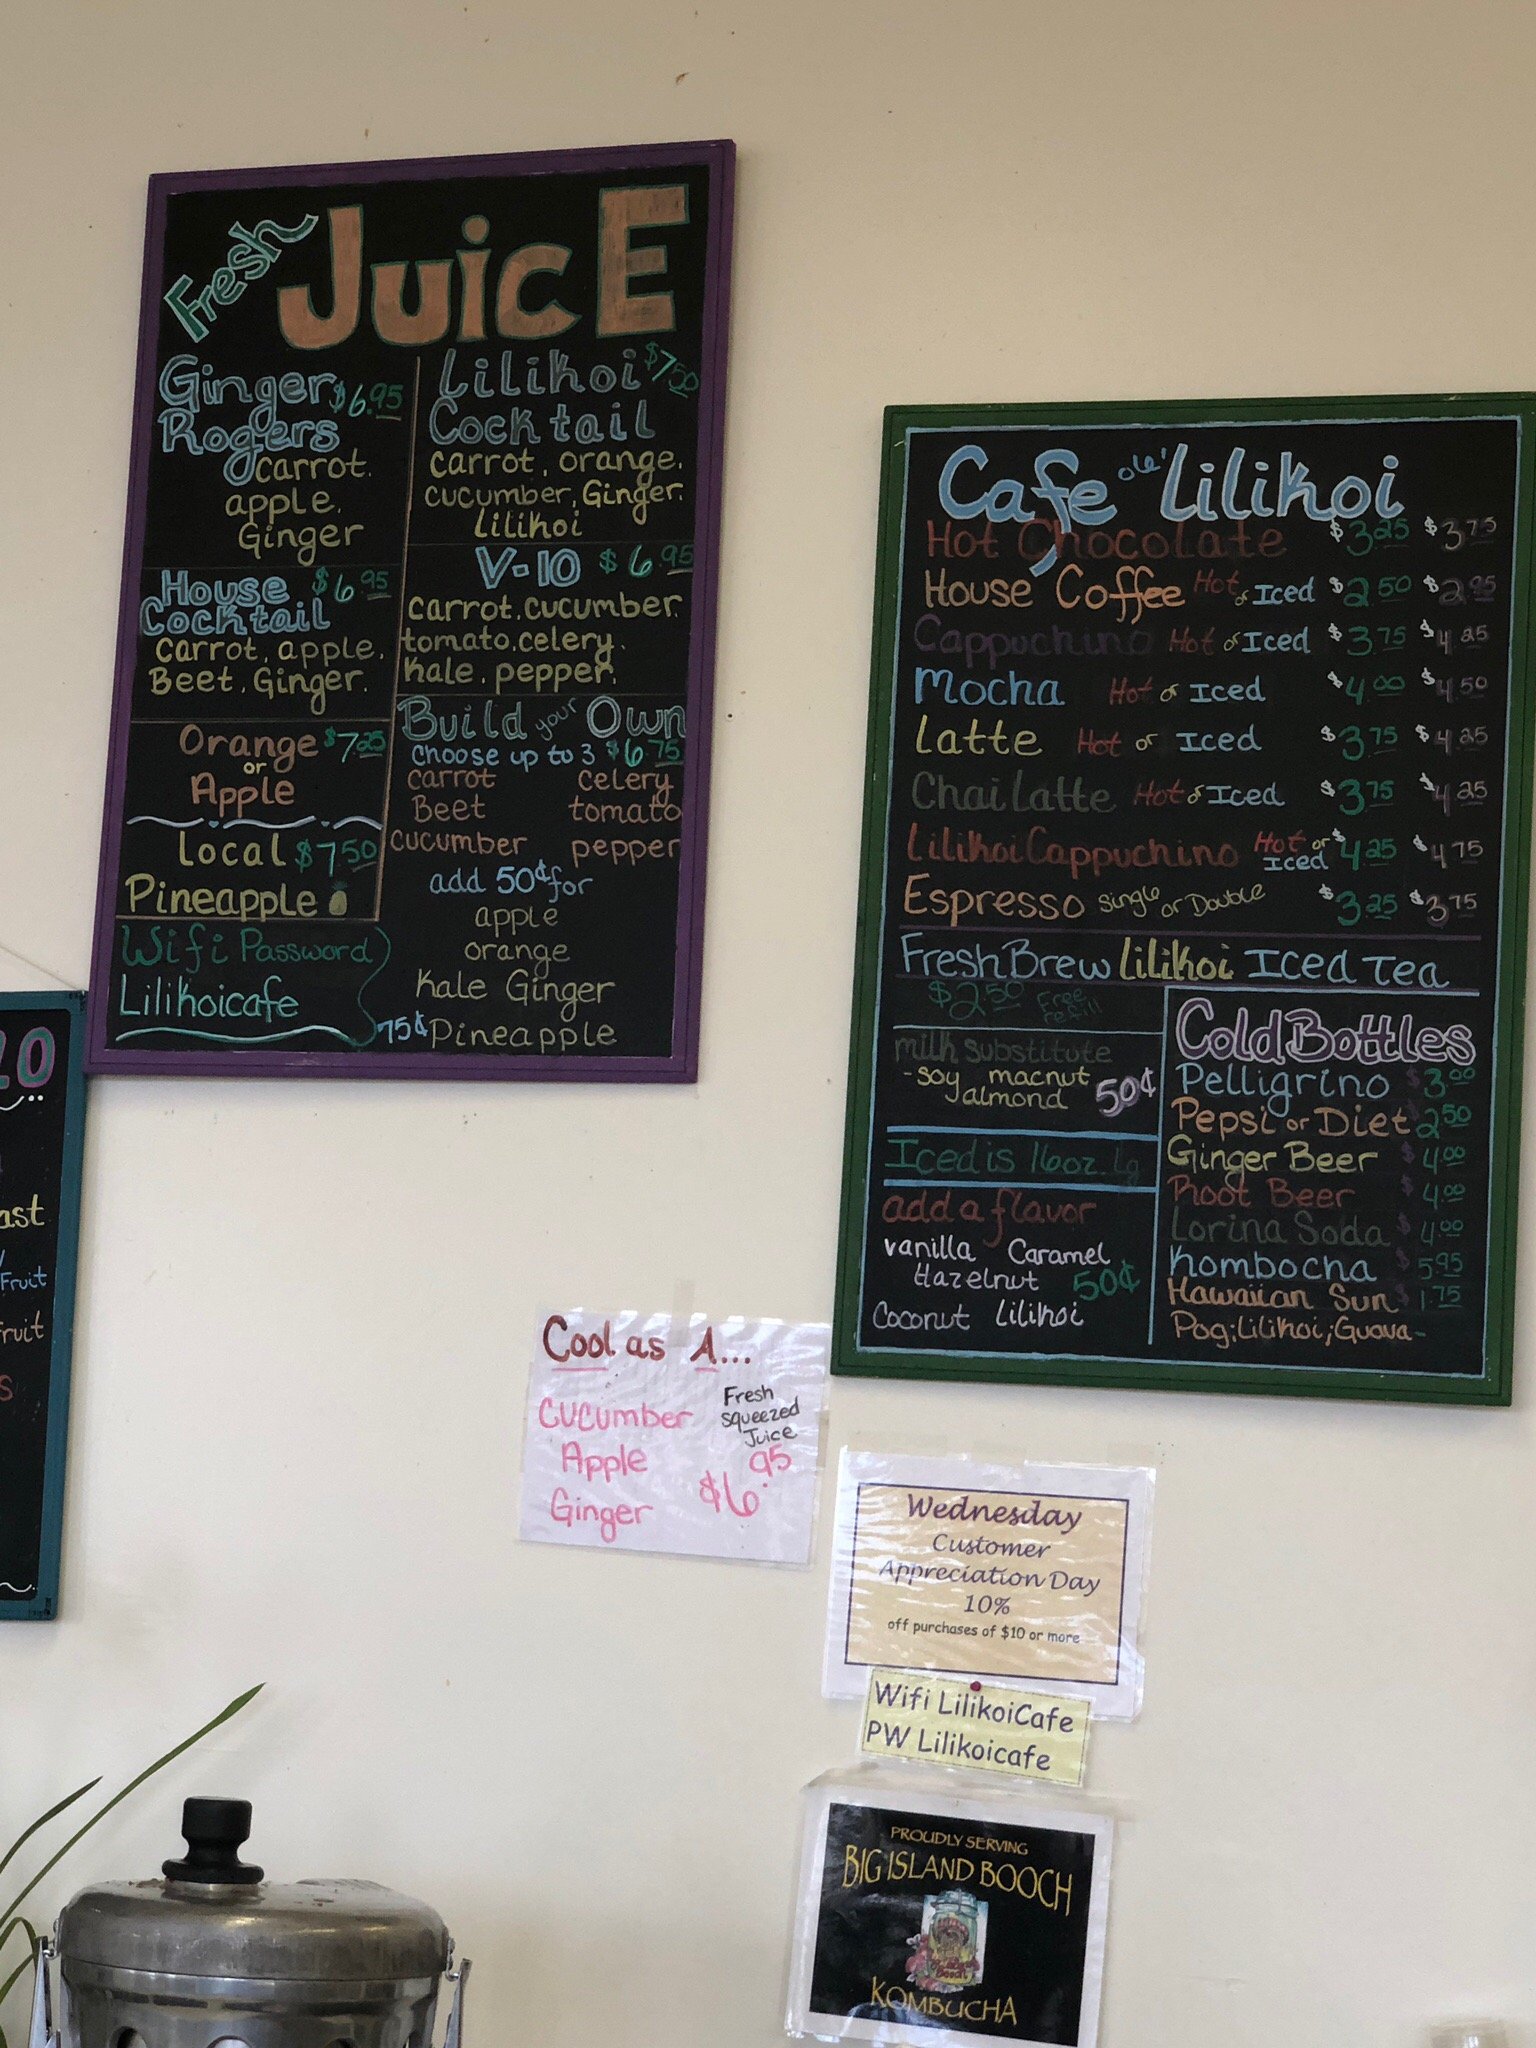 Fresh JuicE
Ginger $6.95
Rogers
carrot.
apple.
Ginger
House $6.95
Cocktail
carrot, apple.
Beet, Ginger.
Orange $7.25
or
Apple
Local $7.50
Pineapple
Wifi Password
Lilikoicafe
Lilikoi $7.50
Cocktail
carrot, orange.
cucumber, Ginger.
lilikoi
V-10 $6.95
carrot.cucumber.
tomato.celery.
kale. pepper.
Build your Own
Choose up to 3 $6.75
carrot celery
Beet tomato
cucumber pepper
add 50¢ for
apple
orange
Kale Ginger
75¢ Pineapple
Cafe ole' Lilikoi
Hot Chocolate $3.25 $3.75
House Coffee Hot or Iced $2.50 $2.95
Cappuchino Hot or Iced $3.75 $4.25
Mocha Hot or Iced $4.00 $4.50
Latte Hot or Iced $3.75 $4.25
Chai Latte Hot or Iced $3.75 $4.25
Lilikoi Cappuchino Hot or Iced $4.25 $4.75
Espresso Single or Double $3.25 $3.75
Fresh Brew lilikoi Iced Tea
$2.50 Free refill
milk substitute
-soy macnut
almond 50¢
Iced is 16oz. lg
add a flavor
vanilla Caramel
Hazelnut 50¢
Coconut Lilikoi
Cold Bottles
Pelligrino $3.00
Pepsi or Diet $2.50
Ginger Beer $4.00
Root Beer $4.00
Lorina Soda $4.00
Kombocha $5.95
Hawaiian Sun $1.75
Pog;Lilikoi;Guava-
20
ast
Fruit
fruit
s
Cool as A...
Cucumber
Apple
Ginger
Fresh
squeezed
Juice
$6.95
Wednesday
Customer
Appreciation Day
10%
off purchases of $10 or more
Wifi LilikoiCafe
PW Lilikoicafe
PROUDLY SERVING
BIG ISLAND BOOCH
KOMBUCHA